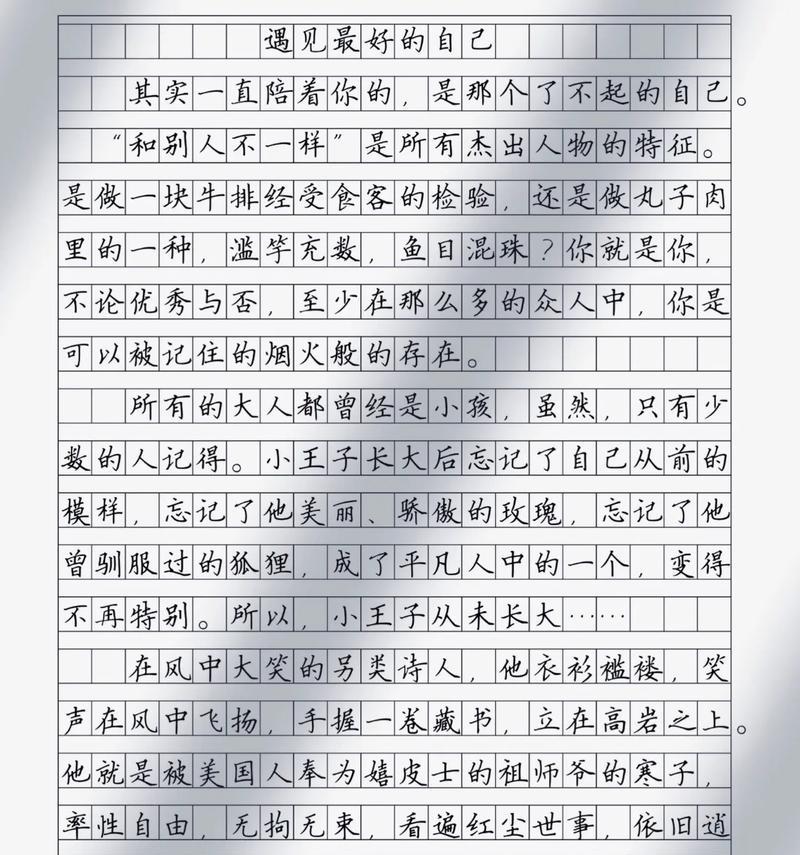 遇见最好的自己
其实一直陪着你的，是那个了不起的自己。
“和别人不一样”是所有杰出人物的特征。
是做一块牛排经受食客的检验，还是做丸子肉
里的一种，滥竽充数，鱼目混珠？你就是你，
不论优秀与否，至少在那么多的众人中，你是
可以被记住的烟火般的存在。
所有的大人都曾经是小孩，虽然，只有少
数的人记得。小王子长大后忘记了自己从前的
模样，忘记了他美丽、骄傲的玫瑰，忘记了他
曾驯服过的狐狸，成了平凡人中的一个，变得
不再特别。所以，小王子从未长大……
在风中大笑的另类诗人，他衣衫褴褛，笑
声在风中飞扬，手握一卷藏书，立在高岩之上。
他就是被美国人奉为嬉皮士的祖师爷的寒子，
率性自由，无拘无束，看遍红尘世事，依旧逍